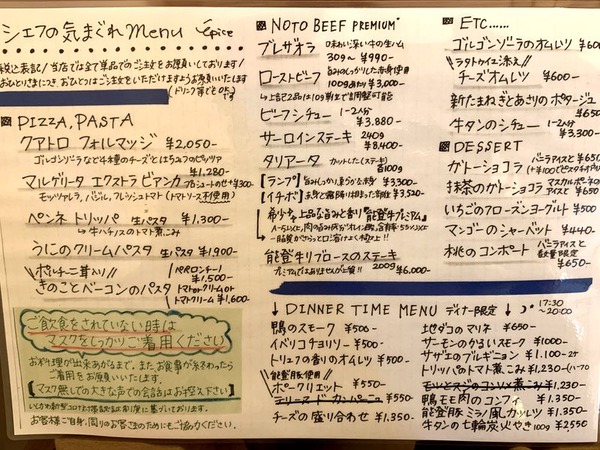 シェフの気まぐれ Menu épice
税込表記/当店では全て単品でのご注文をお願いしております/
おひとりさまにつき、おひとつはご注文をいただけますようお願いいたします
(ドリンク等でもOK)です
PIZZA, PASTA
クアトロ フォルマッジ ¥2,050-
ゴルゴンゾーラなど4種のチーズとはちみつのピッツァ
マルゲリータ エクストラ ビアンカ ¥1,280- プロシュートのせ+¥300-
モッツァレラ、バジル、フレッシュトマト(トマトソース不使用)
ペンネ トリッパ 生パスタ ¥1,300-
↳牛ハチノスのトマト煮込み
うにのクリームパスタ 生パスタ ¥1,900-
\\ポルチーニ茸入り//
きのことベーコンのパスタ
ペペロンチーノ ¥1,500-
トマトorクリームor
トマトクリーム ¥1,600-
ご飲食をされていない時は
マスクをしっかりご着用ください
お料理が出来あがるまで、またお食事が終わってから
ご着用をお願いいたします。
【マスク無しでの大きな声での会話はお控え下さい】
お客様ご自身、周りのお客さまのためにもご協力ください。
NOTO BEEF PREMIUM
ブレザオラ 味わい深い牛の生ハム
30g〜 ¥990-
ローストビーフ 旨みのしっかりした赤身使用
100gあたり ¥3,000-
↳上記2品は10g単位で調整可能
ビーフシチュー 1-2人分
¥3,880-
サーロインステーキ 240g
¥8,400-
タリアータ カットした(ステーキ) 各100g
【ランプ】旨みしっかり、柔らかな赤身 ¥3,300-
【イチボ】赤身と霜降り相まった部位 ¥3,520-
希少な上品な旨みと香り「能登牛プレミアム」
能登牛リブロースのステーキ
プレミアムではありませんが上質!! 200g ¥6,000-
ETC......
ゴルゴンゾーラのオムレツ ¥600-
\\ラタトゥイユ添え//
チーズオムレツ ¥600-
新たまねぎとあさりのポタージュ
¥650-
牛タンのシチュー 1-2人分
¥3,300-
DESSERT
ガトーショコラ バニラアイスと ¥650
(+¥100でピスタチオアイス)
抹茶のガトーショコラ マスカルポーネアイスと ¥650
いちごのフローズンヨーグルト ¥500
マンゴーのシャーベット ¥440-
桃のコンポート バニラアイスと 数量限定
¥650-
↓ DINNER TIME MENU ディナー限定 ↓ 17:30〜20:00
鴨のスモーク ¥500-
イベリコチョリソー ¥500-
トリュフの香りのオムレツ ¥500-
\\能登豚使用//
ポークリエット ¥550-
テリーヌ ド カンパーニュ ¥550-
チーズの盛り合わせ ¥1,350-
地ダコのマリネ ¥650-
サーモンのかるいスモーク ¥1000-
サザエのブルギニョン ¥1,100-
トリッパのトマト煮込み ¥1,230-
¥1,230-
鴨モモ肉のコンフィ ¥1,350-
能登豚ミラノ風カツレツ ¥1,350-
牛タンの七輪炭火やき 100g ¥2550